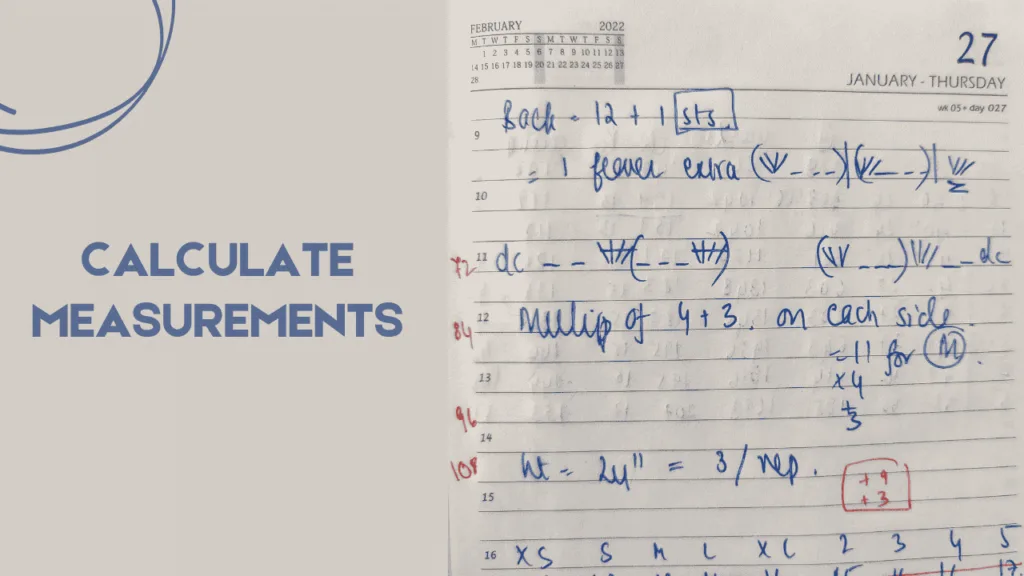 CALCULATE
MEASUREMENTS
FEBRUARY 2022
M T W T F S S M T W T F S S
1 2 3 4 5 6 7 8 9 10 11 12 13
14 15 16 17 18 19 20 21 22 23 24 25 26 27
28
27
JANUARY - THURSDAY
wk 05 • day 027
Back = 12 + 1 sts
9
= 1 extra
10
72 11 dc - - (- - - ) ( - - -) - - dc
84 12 of 4 + 3. on each side.
= 11 for M.
13 x 4
+ 3
96
14
108 ht = 24" = 3 / rep.
15
+ 9
+ 3
16 XS S M L XL 2 3 4 5